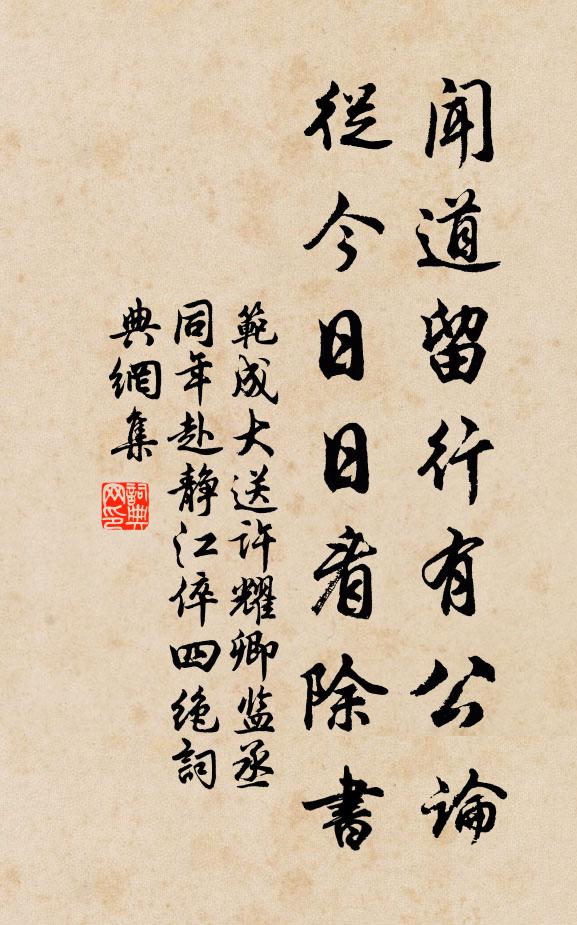 闻道留行有公論
從今日日看除書
範成大送许耀卿监丞
同年赴静江倅四绝詞
典網集
詞典
网印